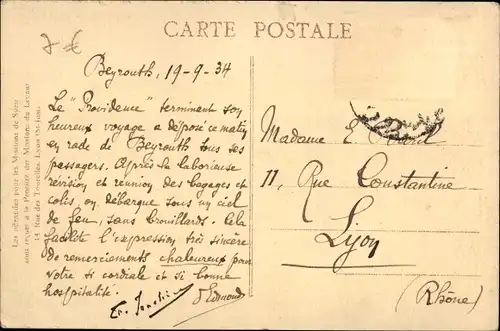 CARTE POSTALE
7 €
Beyrouth, 19-9-34
Le "Providence" terminant son
heureux voyage a déposé ce matin
en rade de Beyrouth tous ses
passagers. Après la laborieuse
révision et réunion des bagages et
colis, on débarque sous un ciel
de feu, sans brouillards. Cela
facilite l'expression très sincère
de remerciements chaleureux pour
votre si cordiale et si bonne
hospitalité.
Edmond
Madame E.
11, Rue Constantine
Lyon
(Rhône)
Les offrandes pour les Missions de Syrie
sont reçues à la Procure des Missions du Levant